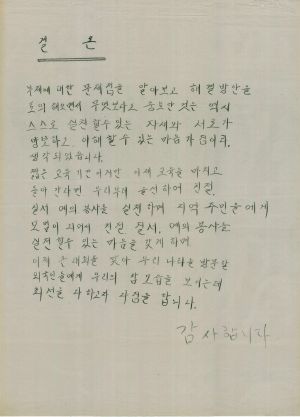 결 론
주제에 대한 문제점을 알아보고 해결방안을
토의 해보면서 무엇보다도 중요한 것는 역시
스스로 실천 할수 있는 자세와 서로가
양보하고 이해 할수 있는 마음가짐이라
생각되었습니다.
짧은 교육기간 이지만 이제 교육을 마치고
돌아 간다면 우리부터 솔선 하여 친절,
질서 예의 봉사을 실천 하며 지역 주민들에게
모범이 되어서 친절 질서, 예의 봉사을
실천할수 있는 마음을 갖게 하며
이제 큰 대회를 맞아 우리 나라를 방문할
외국인들에게 우리의 참모습을 보이는데
최선을 다 하고자 다짐을 합니다.
감사합니다